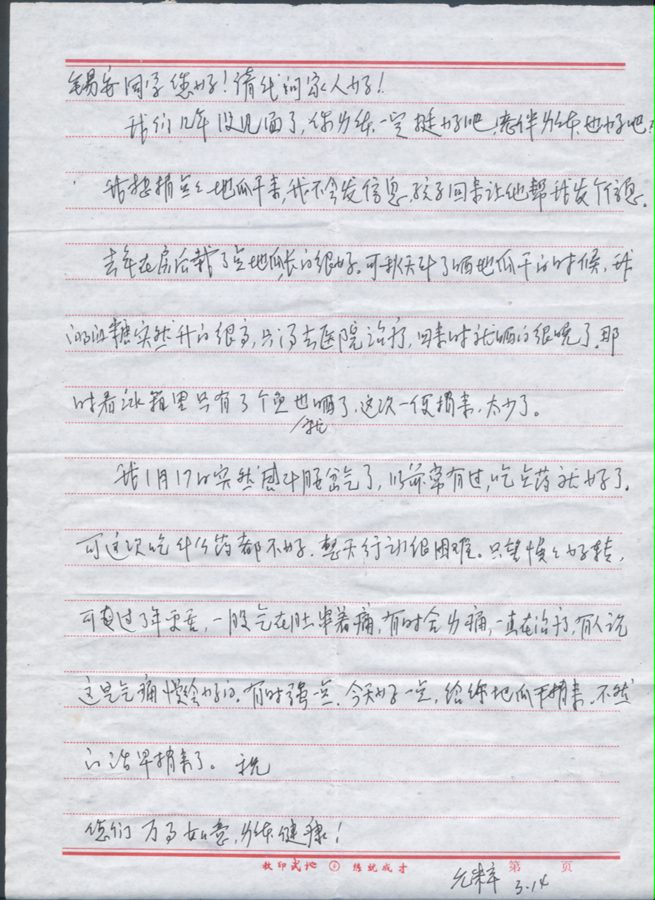 锡安同学您好!请代问家人好!
我们几年没见面了,你身体一定挺好吧,老伴身体也好吧,
我想捎点地瓜干来,我不会发信息,孩子回来让他帮我发个信息。
去年在房后栽了点地瓜长的很好。可秋天到了晒地瓜干的时候,我
的血糖突然升的很高,只得去医院治疗,回来时就晒的很晚了。那
时看冰箱里只有了个鱼也晒了,这次一便捎来,太少了。
就
我1月17日突然感到腰岔气了,以前常有过,吃点药就好了。
可这次吃什么药都不好。整天行动很困难。只望慢慢好转,
可过了年更重,一股气在肚里窜着痛,有时全身痛,一直在治疗,有人说
这是气痛慢会好的。有时强一点。今天好一点,给你地瓜干捎来。不然
的话早捎来了。 祝
您们万事如意,身体健康!
第 页
3.14